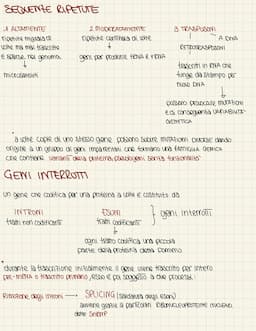 SEQUENZE RIPETUTE
1 ALTAMENTE
ripetute migliaia di
volte ma mai trascritte
e sparse nel genoma
microsatelliti
2 MODERATAMENTE
ripetute centinaia di volte
geni per produrre tRNA e rRNA
3 TRASPOSONI
A DNA
RETROTRASPOSONI
trascritti in RNA che
funge da stampo per
nuovo DNA
possono provocare mutazioni
e di conseguenza VARIABILITÀ
GENETICA
a volte copie di uno stesso gene possono subire mutazioni diverse dando
origine a un gruppo di geni imparentati che formano una famiglia genica
che contiene varianti della proteina pseudogeni senza funzionalità
GENI INTERROTTI
un gene che codifica per una proteina a volte è costituito da
INTRONI
tratti non codificanti
ESONI
tratti codificanti
geni interrotti
ogni tratto codifica una piccola
parte della proteina detta dominio
durante la trascrizione inizialmente il gene viene trascritto per intero
pre-mRNA o trascritto primario, esso è poi soggetto a due processi
Rimozione degli introni
SPLICING (saldatura degli esoni)
avviene grazie a particelle ribonucleoproteiche nucleari
dette SNRNP